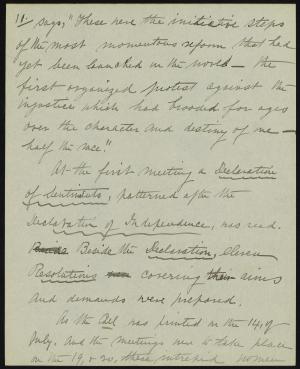 11/ says, "These were the initiative steps
of the most momentous reform that had
yet been launched in the world — the
first organized protest against the
injustice which had brooded for ages
over the character and destiny of one-
half the race."
At the first meeting a Declaration
of Sentiments, patterned after the
Declaration of Independence, was read.
Beside the Declaration, eleven
Resolutions covering their aims
and demands were prepared.
As the Call was printed in the 14, of
July, and the meetings were to take place
on the 19, & 20, these intrepid women